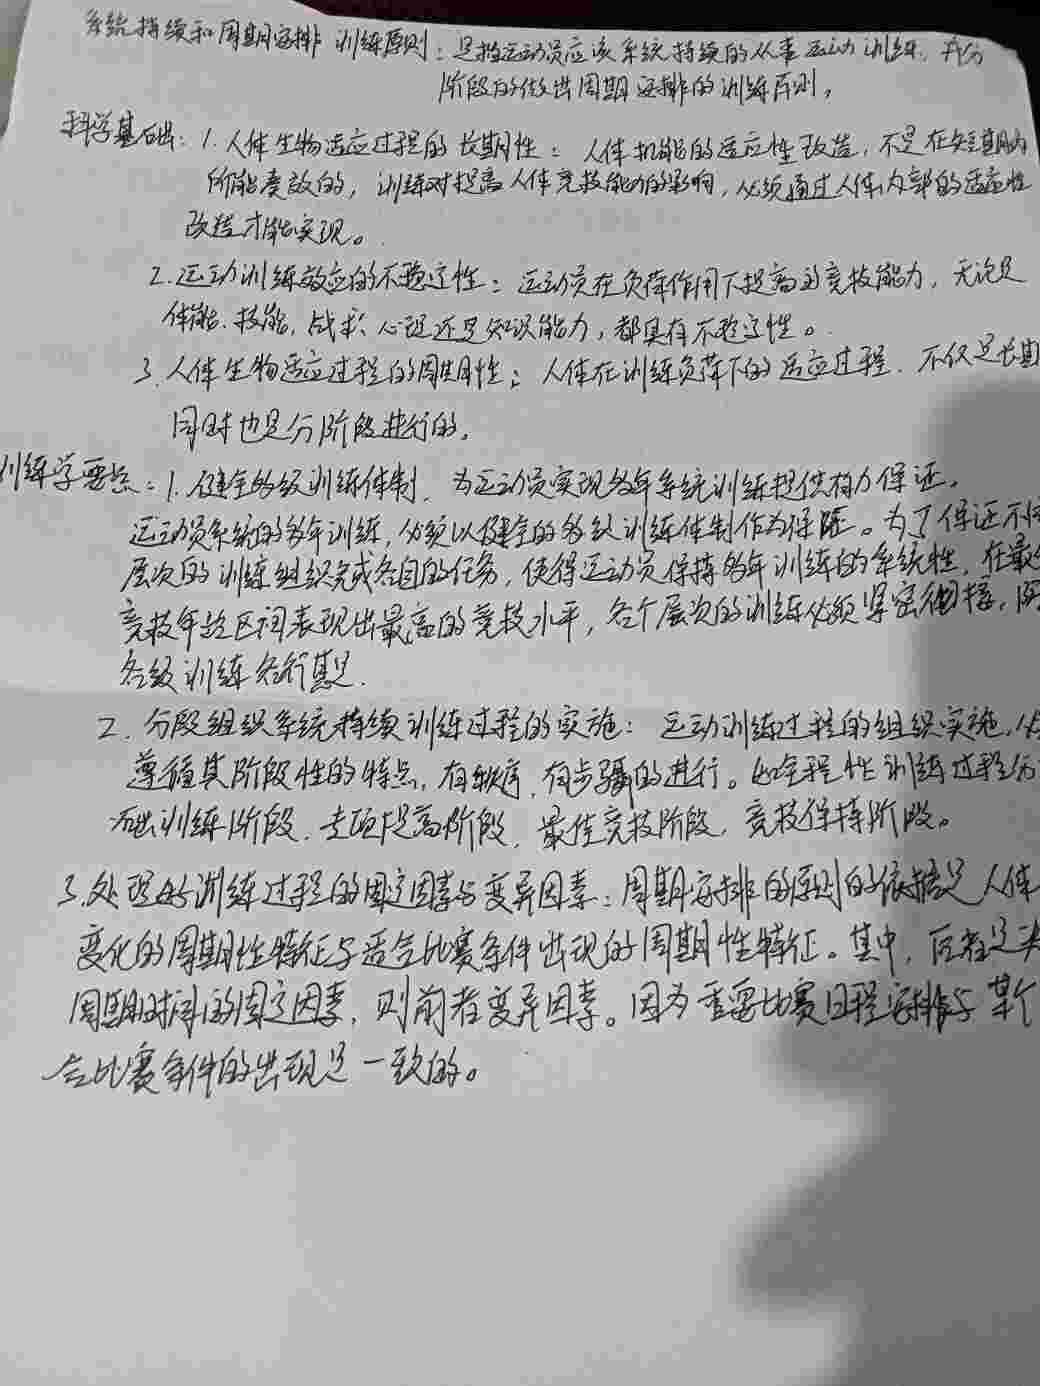 系统持续和周期安排训练原则：是指运动员应该系统持续的从事运动训练，并分
阶段的做出周期安排的训练原则，
科学基础：1.人体生物适应过程的长期性：人体机能的适应性改造，不是在短期内
所能奏效的，训练对提高人体竞技能力的影响，必须通过人体内部的适应性
改造才能实现。
2.运动训练效应的不稳定性：运动员在负荷作用下提高的竞技能力，无论是
体能、技能，战术、心理还是知识能力，都具有不稳定性。
3.人体生物适应过程的周期性：人体在训练负荷下的适应过程，不仅是长期
同时也是分阶段进行的。
训练学要点：1.健全多级训练体制，为运动员实现多年系统训练提供有力保证。
运动员系统的多年训练，必须以健全的多级训练体制作为保障。为了保证不同
层次的训练组织完成各自的任务，使得运动员保持多年训练的系统性，在最
竞技年龄区间表现出最高的竞技水平，各个层次的训练必须紧密衔接，
各级训练各行其是.
2.分段组织系统持续训练过程的实施：运动训练过程的组织实施，
遵循其阶段性的特点，有秩序，有步骤的进行。如全程性训练过程分
础训练阶段、专项提高阶段、最佳竞技阶段、竞技保持阶段。
3.处理好训练过程的固定因素与变异因素：周期安排的原则的依据是人体
变化的周期性特征与适合比赛条件出现的周期性特征。其中，后者是决
周期时间的固定因素，则前者变异因素。因为重要比赛日程安排与某个
合比赛条件的出现是一致的。